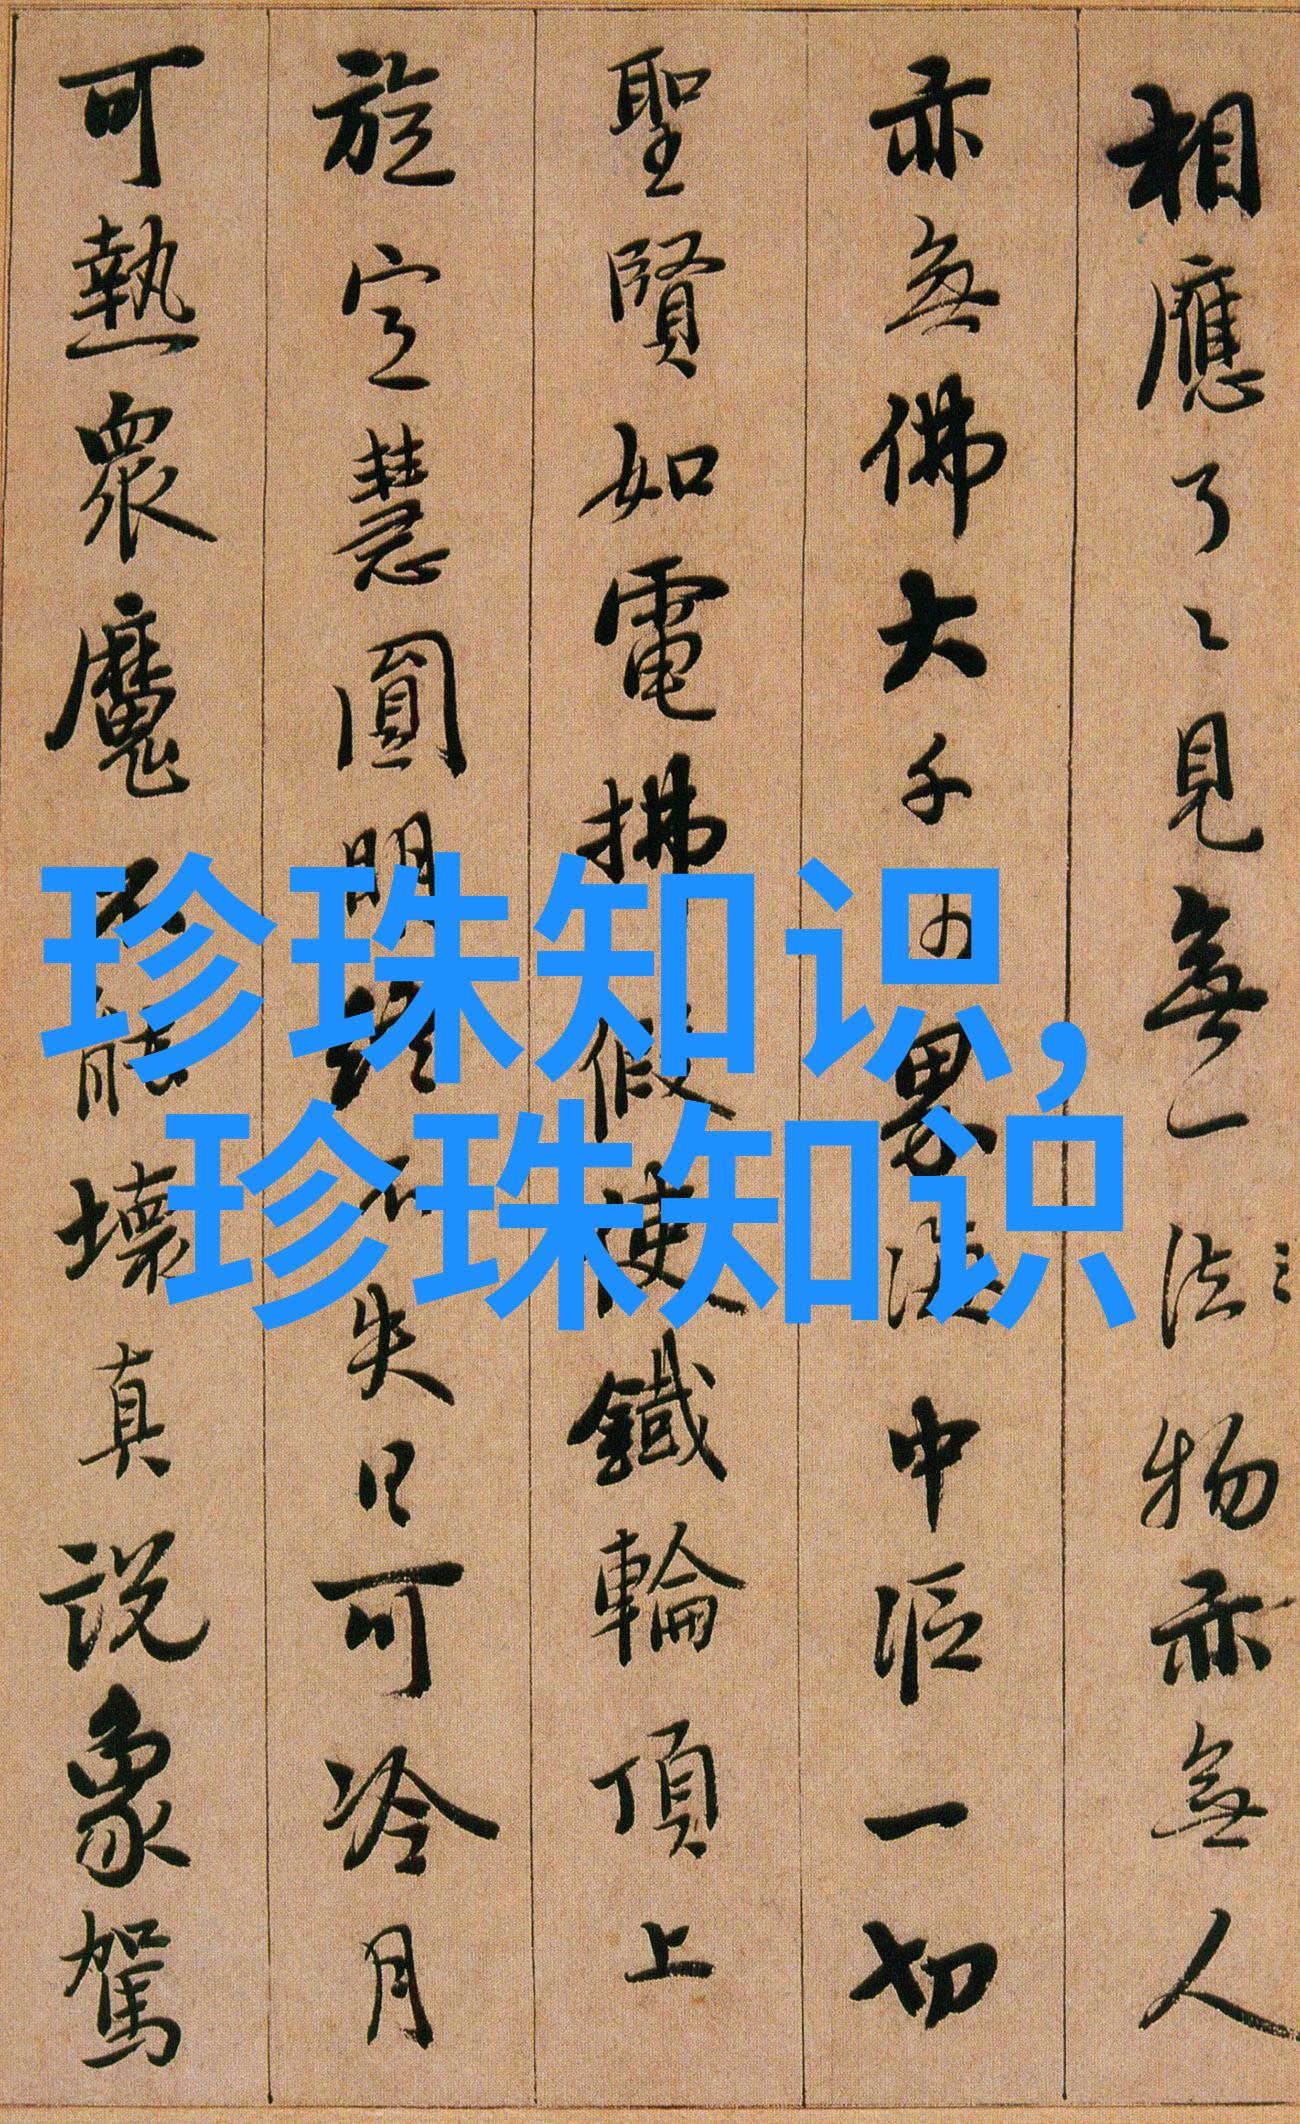 相應了〻見無一法物亦無人
亦無佛大千沙界海中漚一切
聖賢如電拂假使鐵輪頂上
旋定慧圓明終不失日可冷月
可熱衆魔不能壞真説象駕
珍珠知识,
珍珠知识